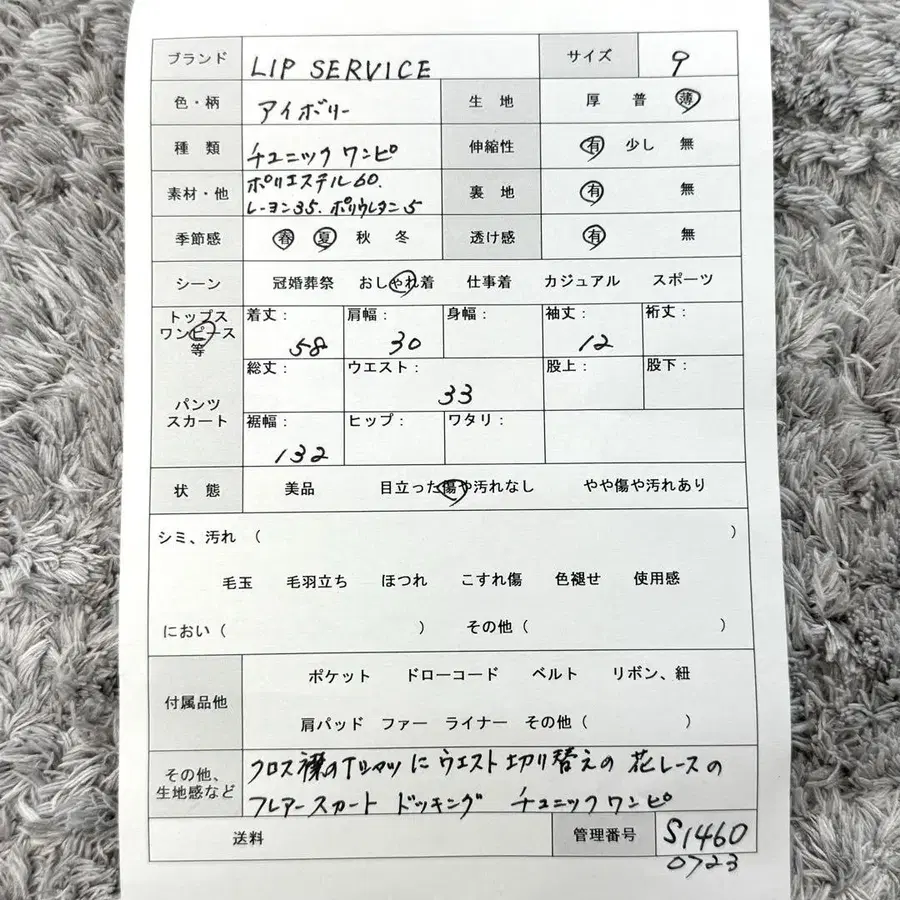 ブランド LIP SERVICE サイズ 9
色・柄 アイボリー 生地 厚 普 薄
種類 チュニックワンピ 伸縮性 有 少し 無
素材・他 ポリエステル60.
レーヨン35. ポリウレタン5 裏地 有 無
季節感 春 夏 秋 冬 透け感 有 無
シーン 冠婚葬祭 おしゃれ着 仕事着 カジュアル スポーツ
トップス
ワンピース
等
着丈： 肩幅： 身幅： 袖丈： 裄丈：
58 30 12
パンツ
スカート
総丈： ウエスト： 股上： 股下：
33
裾幅： ヒップ： ワタリ：
132
状態 美品 目立った傷や汚れなし やや傷や汚れあり
シミ、汚れ （ ）
毛玉 毛羽立ち ほつれ こすれ傷 色褪せ 使用感
におい（ ） その他（ ）
付属品他 ポケット ドローコード ベルト リボン、紐
肩パッド ファー ライナー その他（ ）
その他、
生地感など
クロス襟のTシャツにウエスト切り替えの花レースの
フレアースカート ドッキング チュニックワンピ
送料 管理番号 S1460
0723